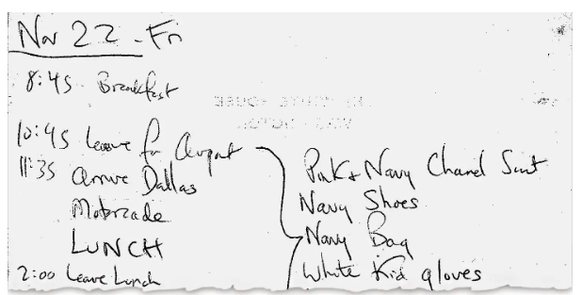 Nov 22 - Fri
8:45 Breakfast
10:45 Leave for Airport
11:35 Arrive Dallas
Motorcade
LUNCH
2:00 Leave Lunch
Pink & Navy Chanel Suit
Navy Shoes
Navy Bag
White Kid gloves
WHITE HOUSE